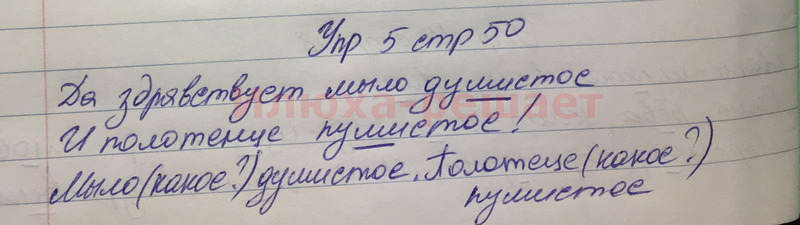 Упр 5 стр 50
Да здравствует мыло душистое
И полотенце пушистое!
Мыло (какое?) душистое. Полотеце (какое?)
пушистое